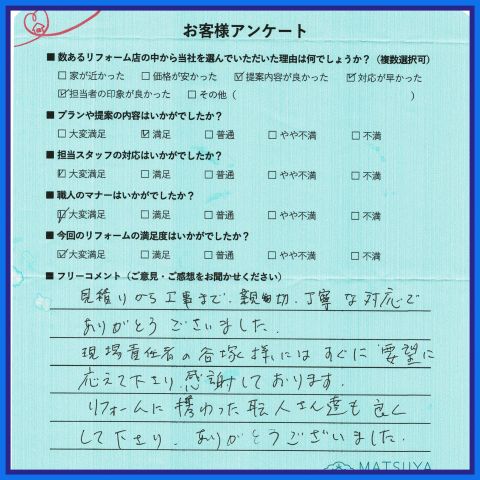 お客様アンケート
■ 数あるリフォーム店の中から当社を選んでいただいた理由は何でしょうか？（複数選択可）
□ 家が近かった □ 価格が安かった ☑ 提案内容が良かった ☑ 対応が早かった
☑ 担当者の印象が良かった □ その他（ ）
■ プランや提案の内容はいかがでしたか？
□ 大変満足 ☑ 満足 □ 普通 □ やや不満 □ 不満
■ 担当スタッフの対応はいかがでしたか？
☑ 大変満足 □ 満足 □ 普通 □ やや不満 □ 不満
■ 職人のマナーはいかがでしたか？
☑ 大変満足 □ 満足 □ 普通 □ やや不満 □ 不満
■ 今回のリフォームの満足度はいかがでしたか？
☑ 大変満足 □ 満足 □ 普通 □ やや不満 □ 不満
■ フリーコメント（ご意見・ご感想をお聞かせください）
見積りから工事まで、親切、丁寧な対応で
ありがとうございました。
現場責任者の谷塚様にはすぐに要望に
応えて下さり感謝しております。
リフォームに携わった職人さん達も良く
して下さり、ありがとうございました。
MATSUYA